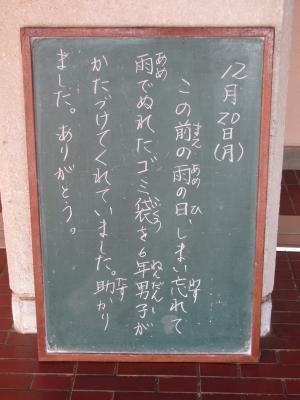 12月20日(月)
この前の雨の日、しまい忘れて
雨でぬれたゴミ袋を6年男子が
かたづけてくれていました。助かり
ました。ありがとう。